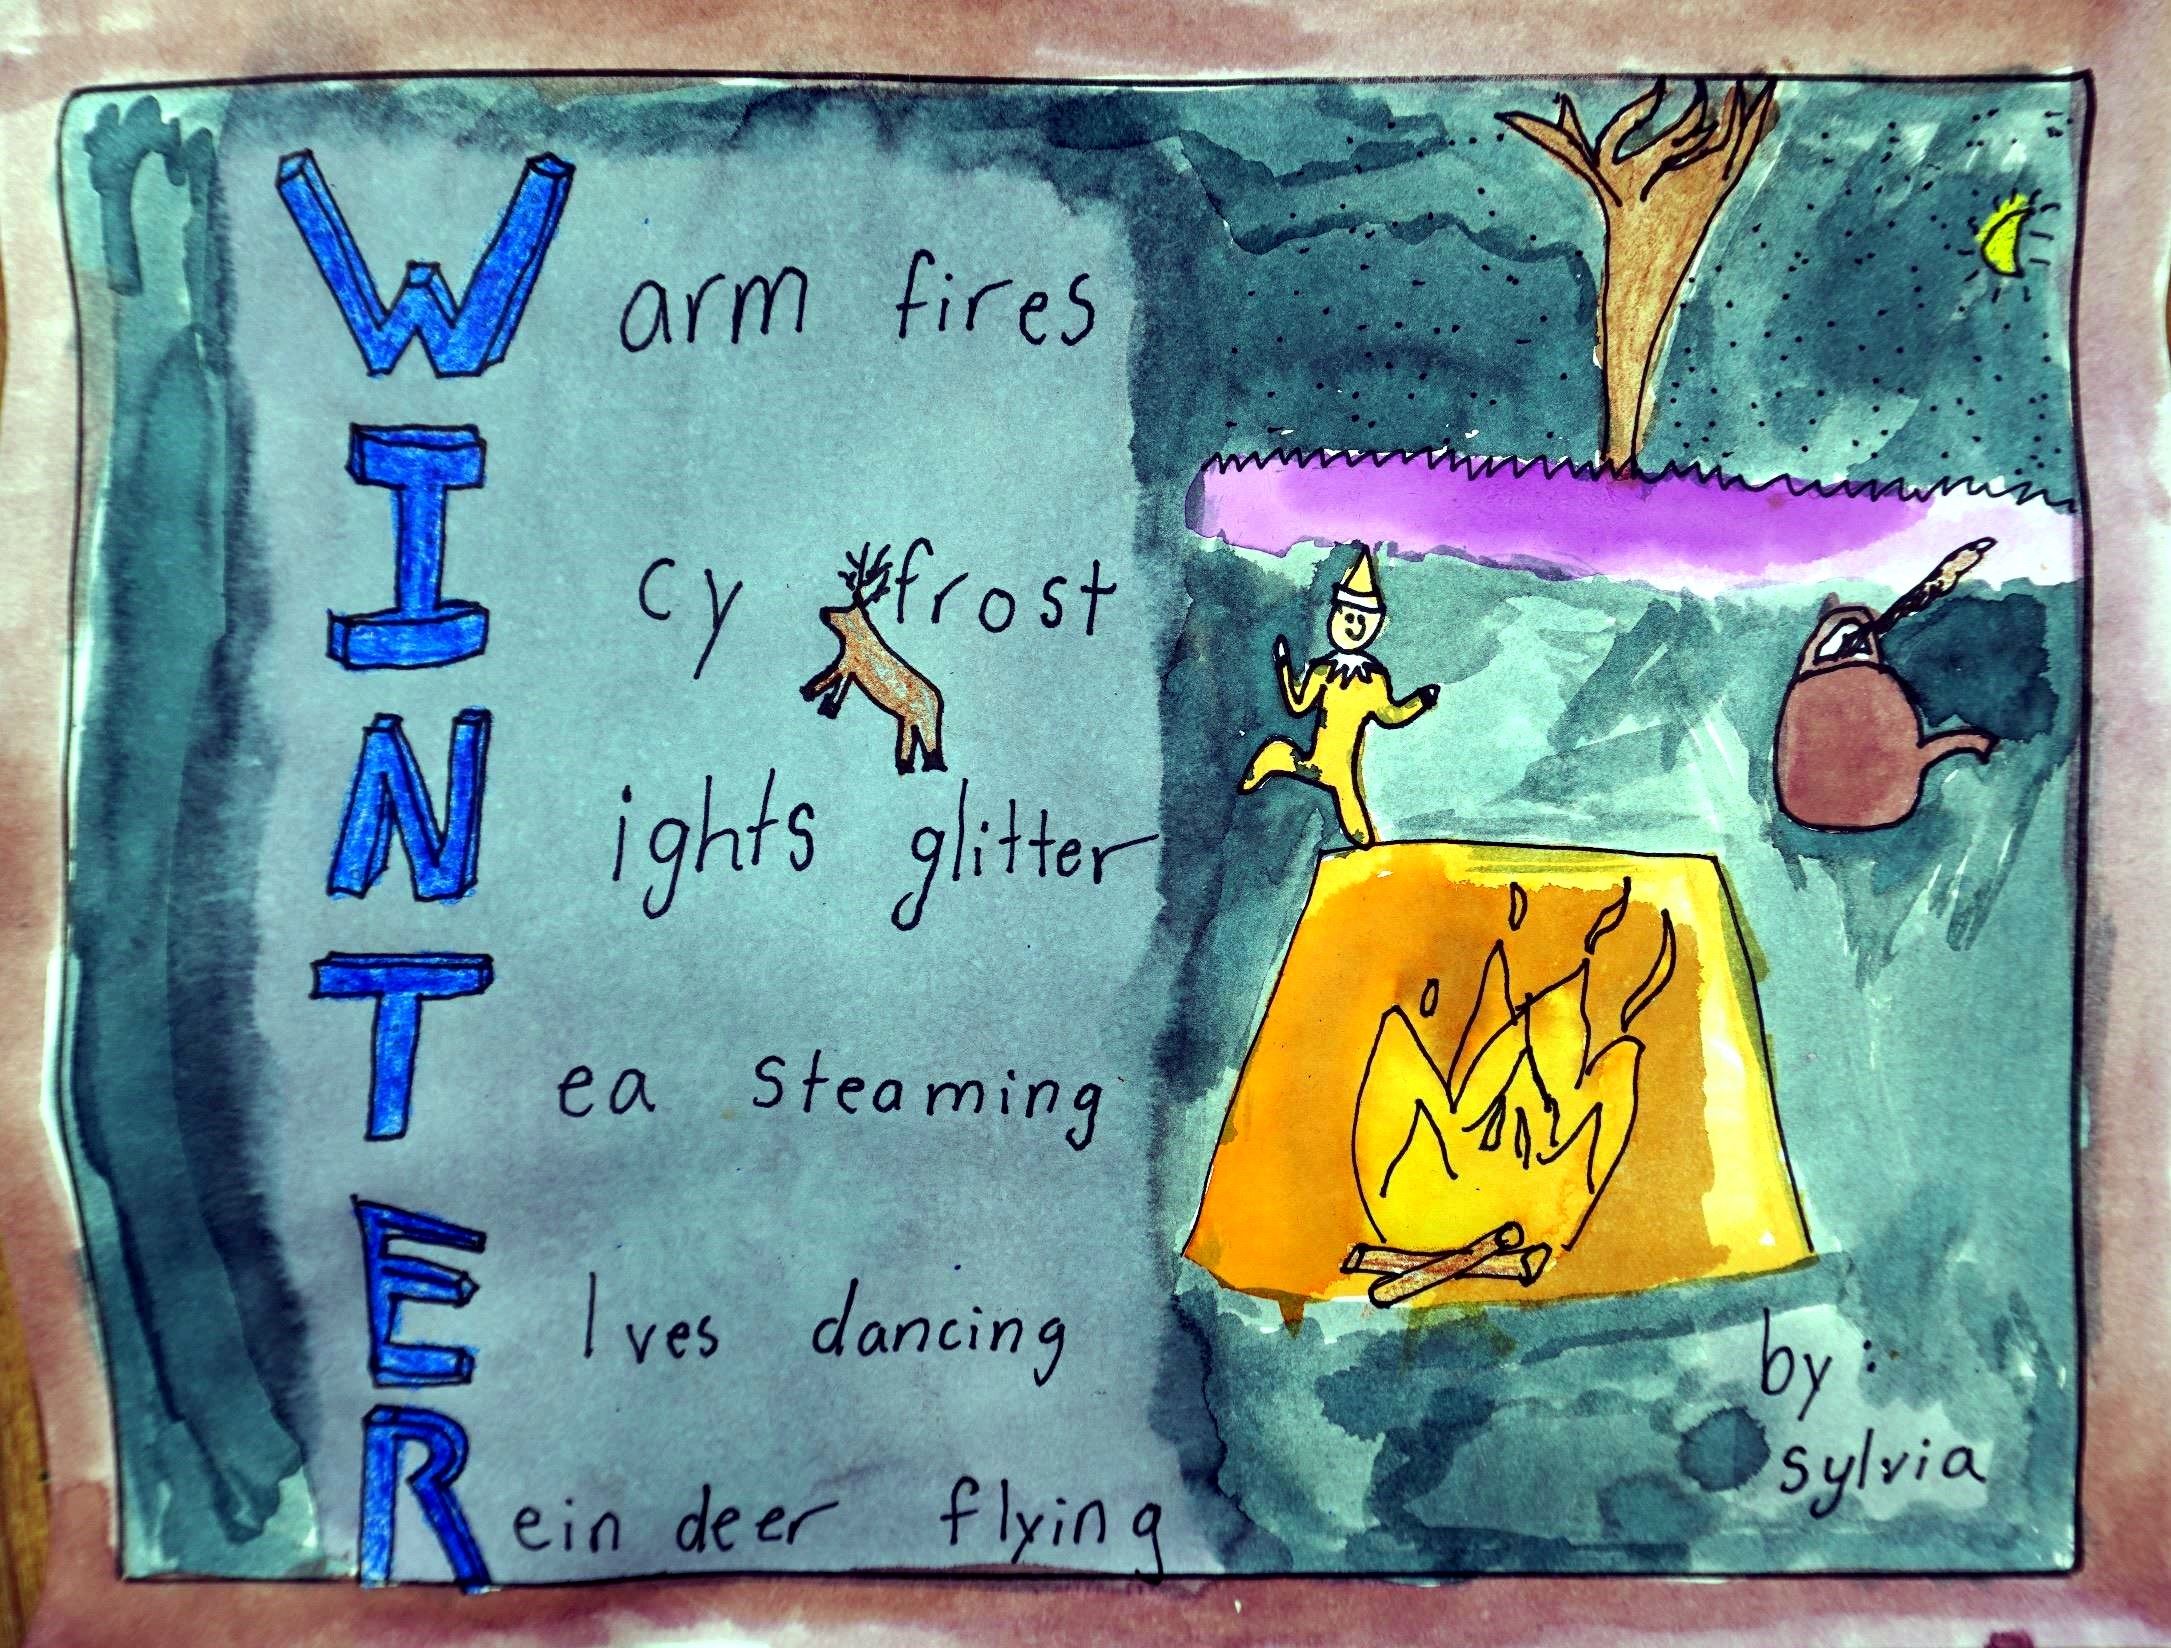 Warm fires
Icy frost
Nights glitter
Tea steaming
Elves dancing
Reindeer flying
by:
sylvia